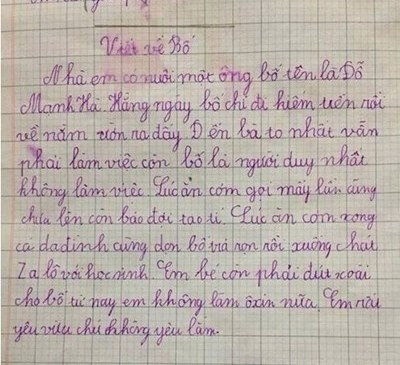 Viết về Bố
Nhà em có nuôi một ông bố tên là Đỗ
Mạnh Hà. Hằng ngày bố chỉ đi kiếm tiền rồi
về nằm ườn ra đấy Đến bà to nhất vẫn
phải làm việc còn bố là người duy nhất
không làm việc. Lúc ăn cơm gọi mấy lần cũng
chưa lên còn bảo đợi tao tí. Lúc ăn cơm xong
cả da đình cùng dọn bố và rọn rồi xuống chat
Za lô với học sinh. Em bé còn phải đút xoài
cho bố từ nay em không làm ôxin nữa. Em rất
yêu vừa chứ không yêu lắm.